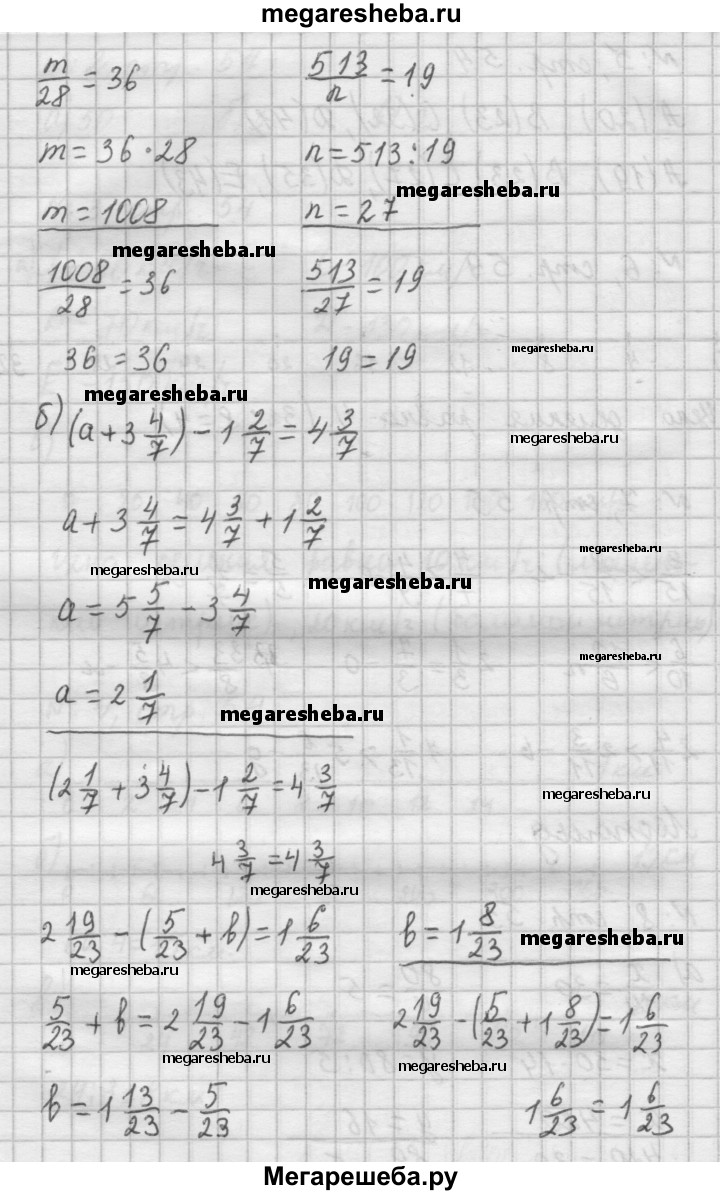 megaresheba.ru
m/28 = 36
m = 36 · 28
m = 1008
1008/28 = 36
36 = 36
513/n = 19
n = 513 : 19
megaresheba.ru
n = 27
megaresheba.ru
513/27 = 19
19 = 19
megaresheba.ru
megaresheba.ru
б) (a + 3 4/7) - 1 2/7 = 4 3/7
megaresheba.ru
a + 3 4/7 = 4 3/7 + 1 2/7
megaresheba.ru
megaresheba.ru
megaresheba.ru
a = 5 5/7 - 3 4/7
megaresheba.ru
a = 2 1/7
megaresheba.ru
(2 1/7 + 3 4/7) - 1 2/7 = 4 3/7
megaresheba.ru
4 3/7 = 4 3/7
megaresheba.ru
2 19/23 - (5/23 + b) = 1 6/23
megaresheba.ru
5/23 + b = 2 19/23 - 1 6/23
megaresheba.ru
b = 1 13/23 - 5/23
b = 1 8/23
megaresheba.ru
2 19/23 - (5/23 + 1 8/23) = 1 6/23
megaresheba.ru
1 6/23 = 1 6/23
Мегарешеба.ру